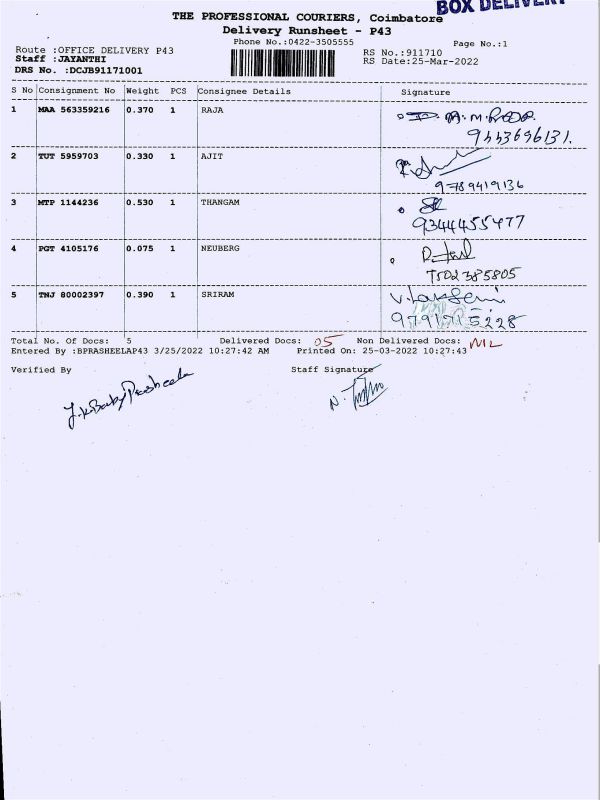 BOX DELIVERY
THE PROFESSIONAL COURIERS, Coimbatore
Delivery Runsheet - P43
Phone No.:0422-3505555
Page No.:1
Route :OFFICE DELIVERY P43
RS No.:911710
Staff :JAYANTHI
RS Date:25-Mar-2022
DRS No. :DCJB91171001
S No Consignment No Weight PCS Consignee Details Signature
1 MAA 563359216 0.370 1 RAJA
9443696131.
2 TUT 5959703 0.330 1 AJIT
9789419136
3 MTP 1144236 0.530 1 THANGAM
9344455477
4 PGT 4105176 0.075 1 NEUBERG
7502385805
5 TNJ 80002397 0.390 1 SRIRAM
9791715228
Total No. Of Docs: 5 Delivered Docs: 05 Non Delivered Docs: NIL
Entered By :BPRASHEELAP43 3/25/2022 10:27:42 AM Printed On: 25-03-2022 10:27:43
Verified By Staff Signature